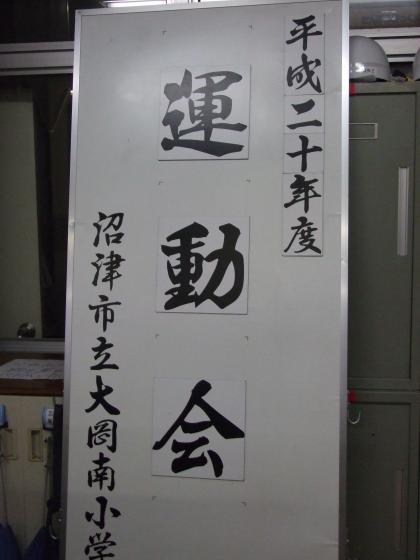 平成二十年度
運動会
沼津市立大岡南小学